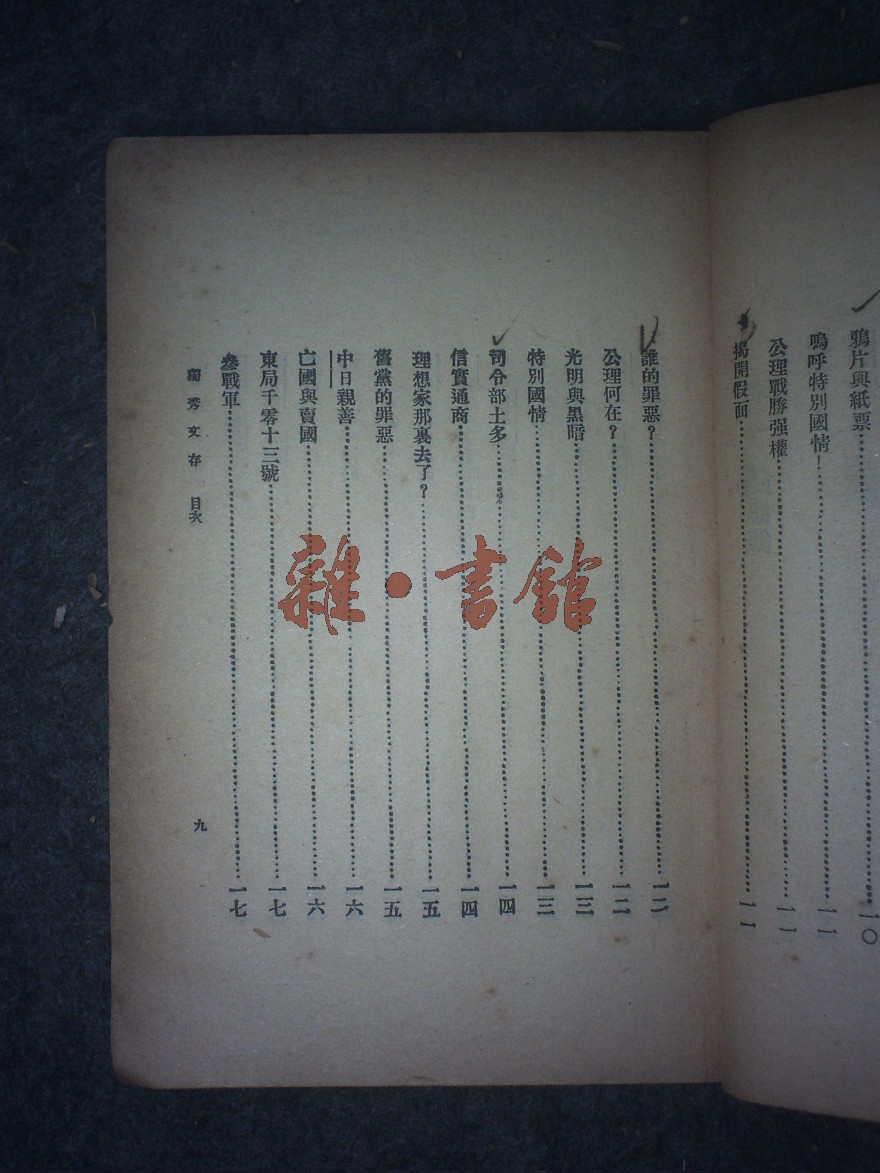 鴉片與紙票……一〇
嗚呼特別國情！……一一
公理戰勝强權……一一
揭開假面……一一
誰的罪惡？……一二
公理何在？……一二
光明與黑暗……一三
特別國情……一三
司令部土多……一四
信實通商……一四
理想家那裏去了？……一五
舊黨的罪惡……一五
中日親善……一六
亡國與賣國……一六
東局千零十三號……一七
參戰軍……一七
獨秀文存 目次
九
雜·書館